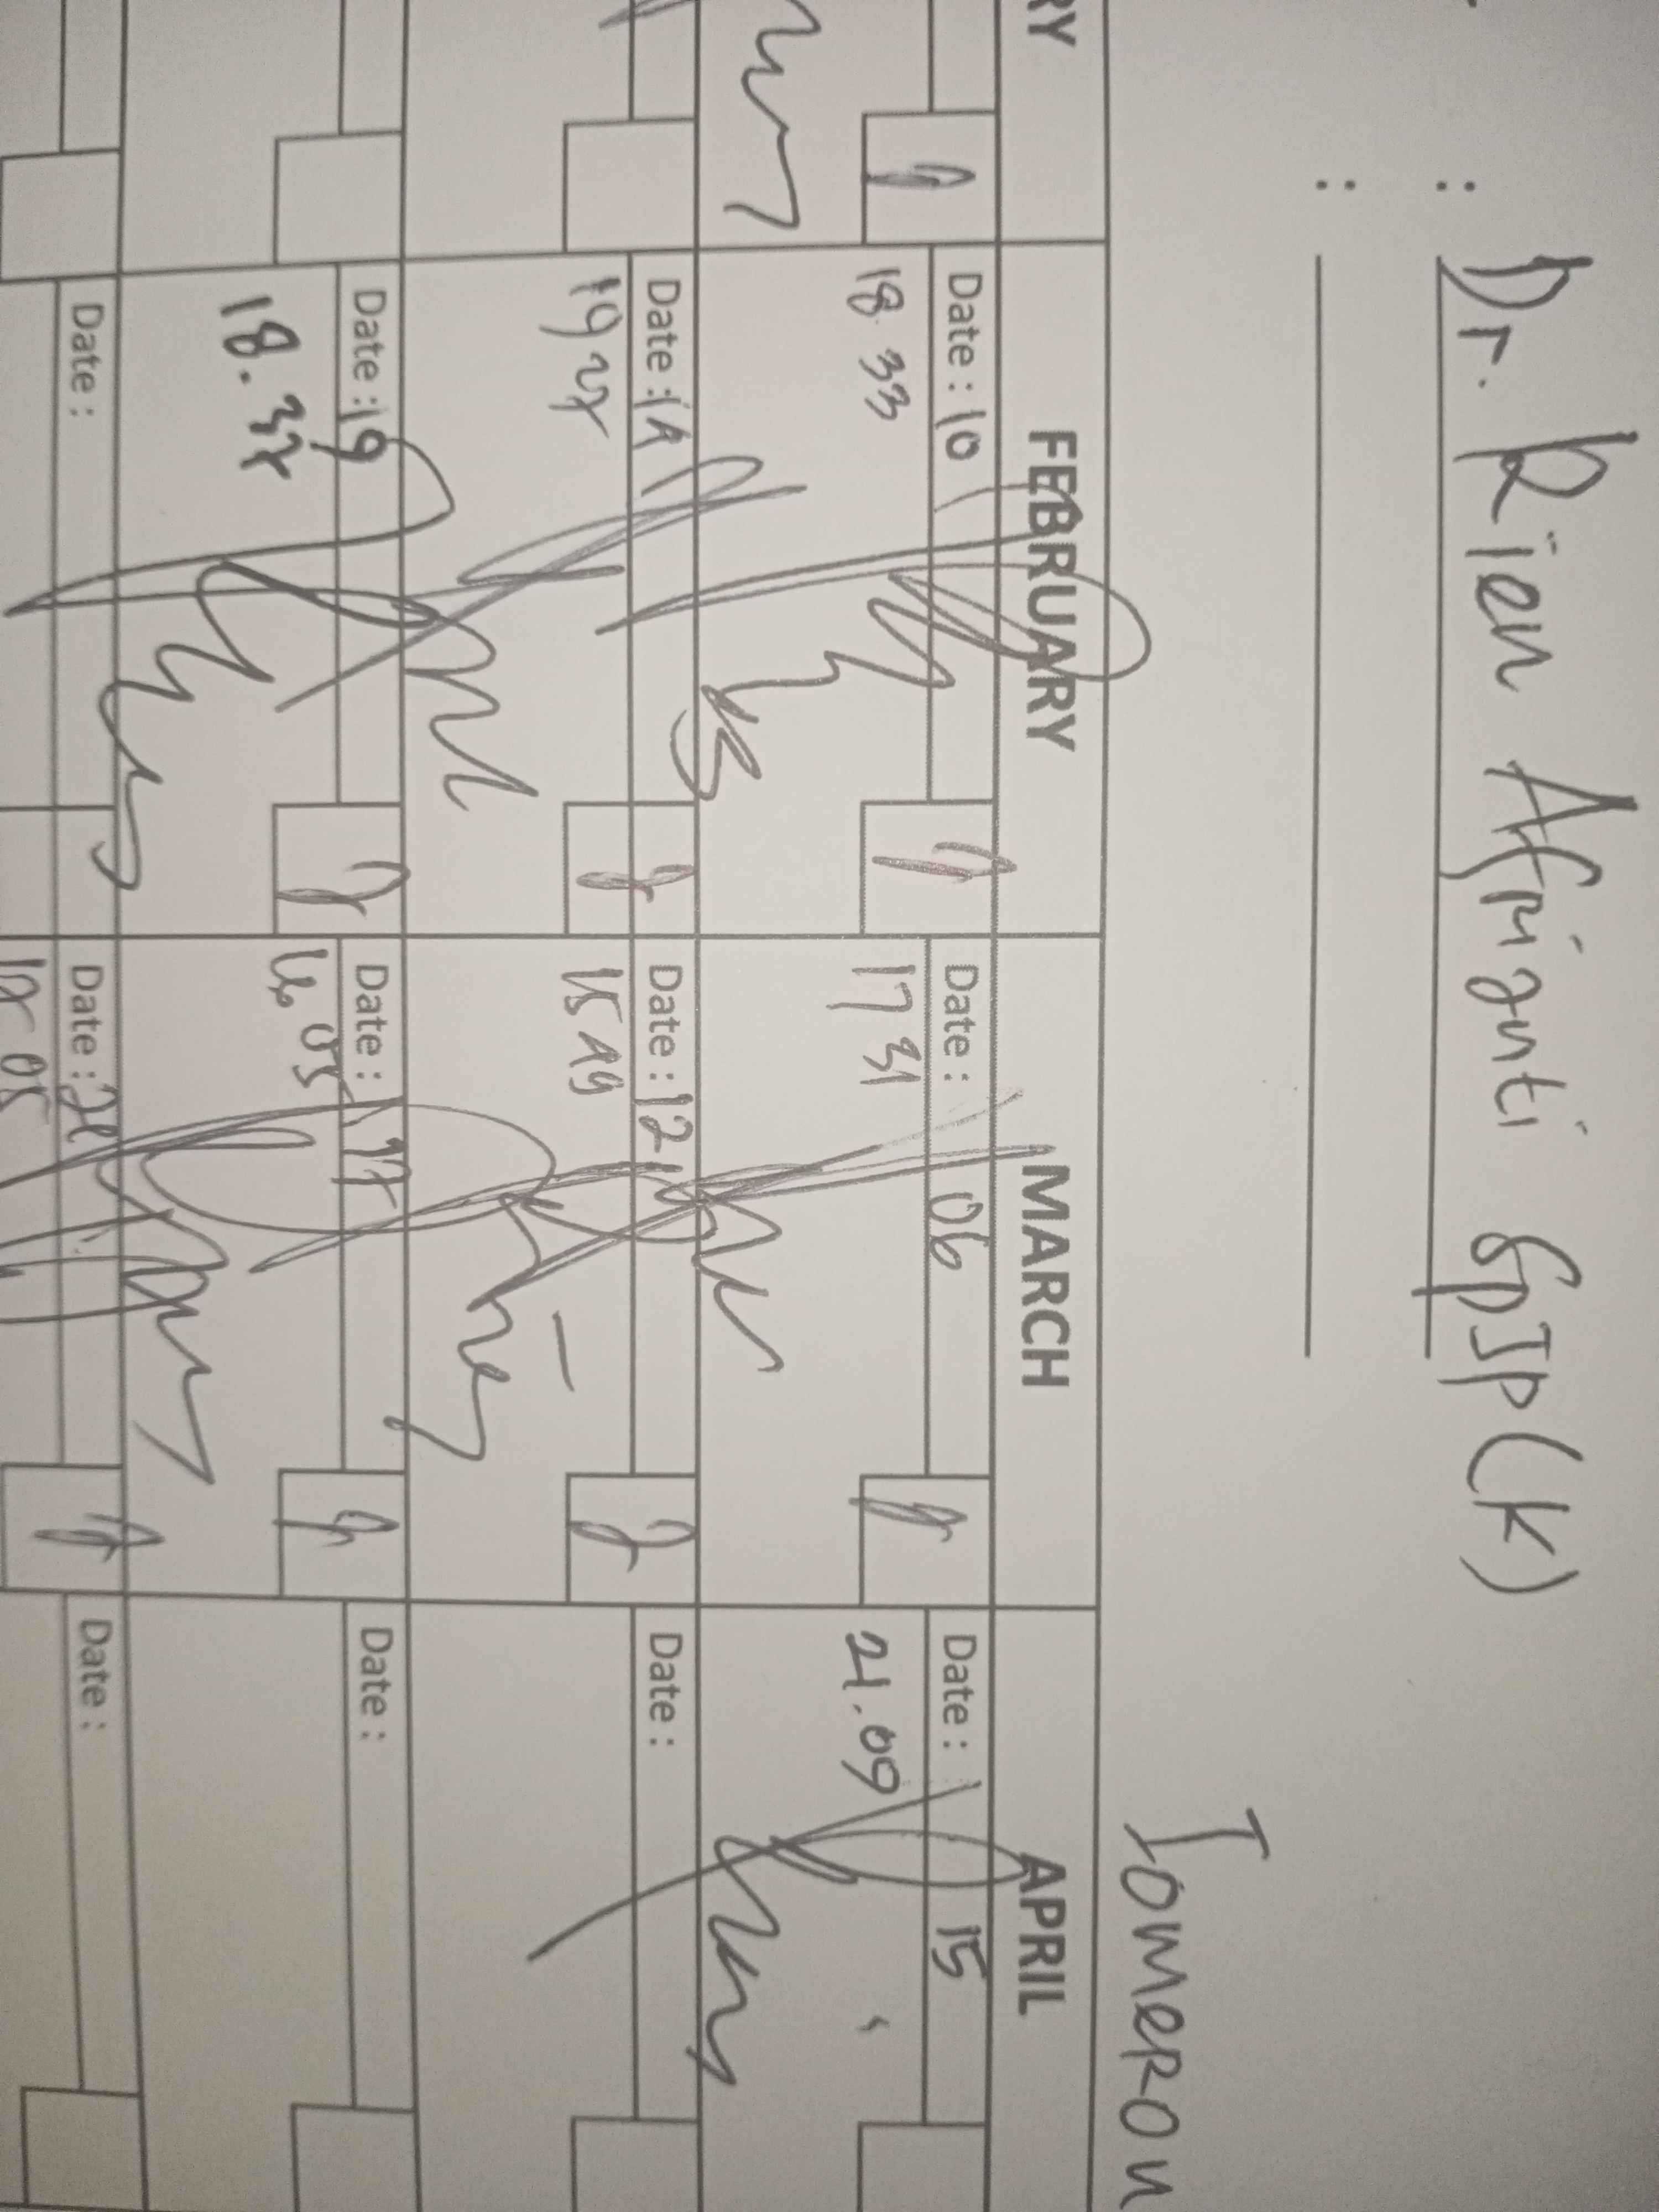 : Dr. Rien Afrianti SpJP(K)
:
Tomeron
RY FEBRUARY MARCH APRIL
Date : 10 Date : 06 Date : 15
18 33 17 31 21.09
Date : 14 Date : 12 Date :
15 49
Date : 19 Date : 17 Date :
18.37 16 05
Date : Date : Date :
05